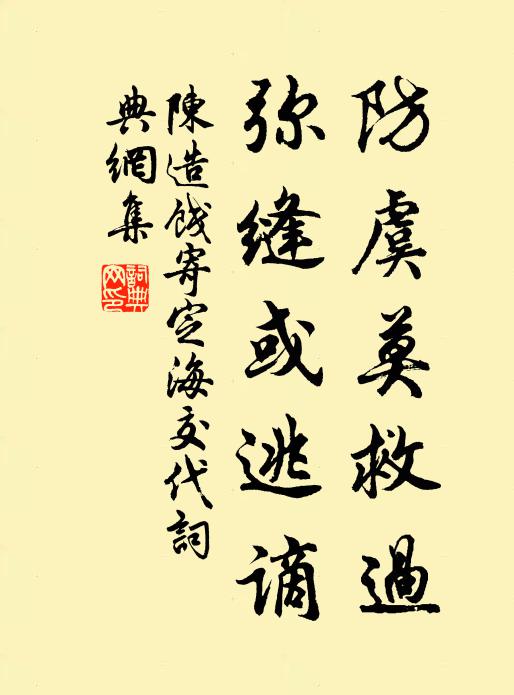 防虞莫救過
弥縫或逃謫
陳造餞寄定海交代詞
典網集
詞典網印